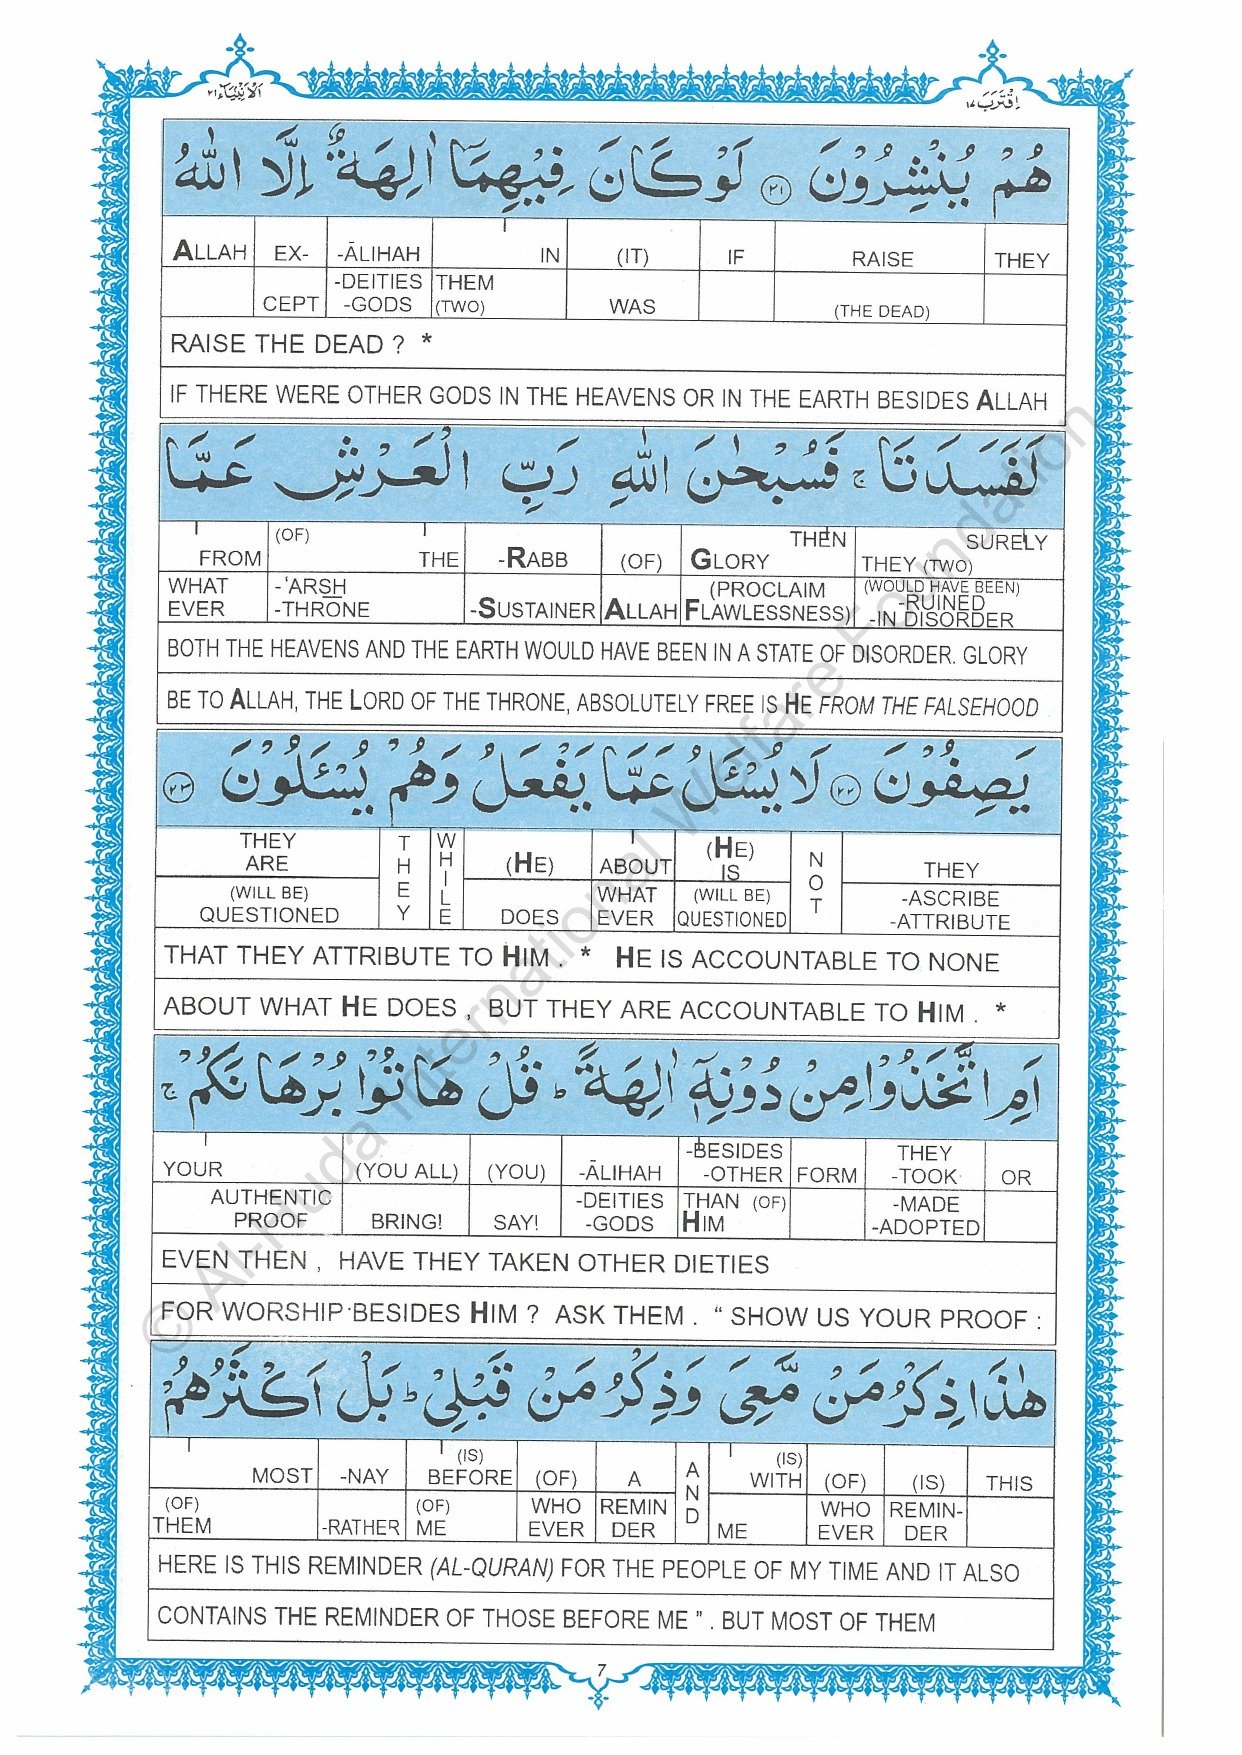 الانبیاء ۲۱
اقترب ۱۷
هُمْ يُنْشِرُوْنَ ﴿۲۱﴾ لَوْ كَانَ فِيْهِمَاۤ اٰلِهَةٌ اِلَّا اللّٰهُ
ALLAH EX- -ĀLIHAH IN (IT) IF RAISE THEY
CEPT -DEITIES -GODS THEM (TWO) WAS (THE DEAD)
RAISE THE DEAD ? *
IF THERE WERE OTHER GODS IN THE HEAVENS OR IN THE EARTH BESIDES ALLAH
لَفَسَدَتَا ۚ فَسُبْحٰنَ اللّٰهِ رَبِّ الْعَرْشِ عَمَّا
FROM (OF) THE -RABB (OF) THEN GLORY SURELY THEY (TWO)
WHAT EVER -‘ARSH -THRONE -SUSTAINER ALLAH (PROCLAIM FLAWLESSNESS) (WOULD HAVE BEEN) -RUINED -IN DISORDER
BOTH THE HEAVENS AND THE EARTH WOULD HAVE BEEN IN A STATE OF DISORDER. GLORY
BE TO ALLAH, THE LORD OF THE THRONE, ABSOLUTELY FREE IS HE FROM THE FALSEHOOD
يَصِفُوْنَ ﴿۲۲﴾ لَا يُسْـَٔلُ عَمَّا يَفْعَلُ وَهُمْ يُسْـَٔلُوْنَ ﴿۲۳﴾
THEY ARE THEY WHILE (HE) ABOUT (HE) IS NOT THEY
(WILL BE) QUESTIONED DOES WHAT EVER (WILL BE) QUESTIONED -ASCRIBE -ATTRIBUTE
THAT THEY ATTRIBUTE TO HIM . * HE IS ACCOUNTABLE TO NONE
ABOUT WHAT HE DOES , BUT THEY ARE ACCOUNTABLE TO HIM . *
اَمِ اتَّخَذُوْا مِنْ دُوْنِهٖۤ اٰلِهَةً ؕ قُلْ هَاتُوْا بُرْهَانَكُمْ ۚ
YOUR (YOU ALL) (YOU) -ĀLIHAH -BESIDES -OTHER FORM THEY -TOOK OR
AUTHENTIC PROOF BRING! SAY! -DEITIES -GODS THAN (OF) HIM -MADE -ADOPTED
EVEN THEN , HAVE THEY TAKEN OTHER DIETIES
FOR WORSHIP BESIDES HIM ? ASK THEM . “ SHOW US YOUR PROOF :
هٰذَا ذِكْرُ مَنْ مَّعِيَ وَذِكْرُ مَنْ قَبْلِيْ ؕ بَلْ اَكْثَرُهُمْ
MOST -NAY (IS) BEFORE (OF) A AND (IS) WITH (OF) (IS) THIS
(OF) THEM -RATHER (OF) ME WHO EVER REMIN DER ME WHO EVER REMIN- DER
HERE IS THIS REMINDER (AL-QURAN) FOR THE PEOPLE OF MY TIME AND IT ALSO
CONTAINS THE REMINDER OF THOSE BEFORE ME ” . BUT MOST OF THEM
7
© Al-Huda International Welfare Foundation